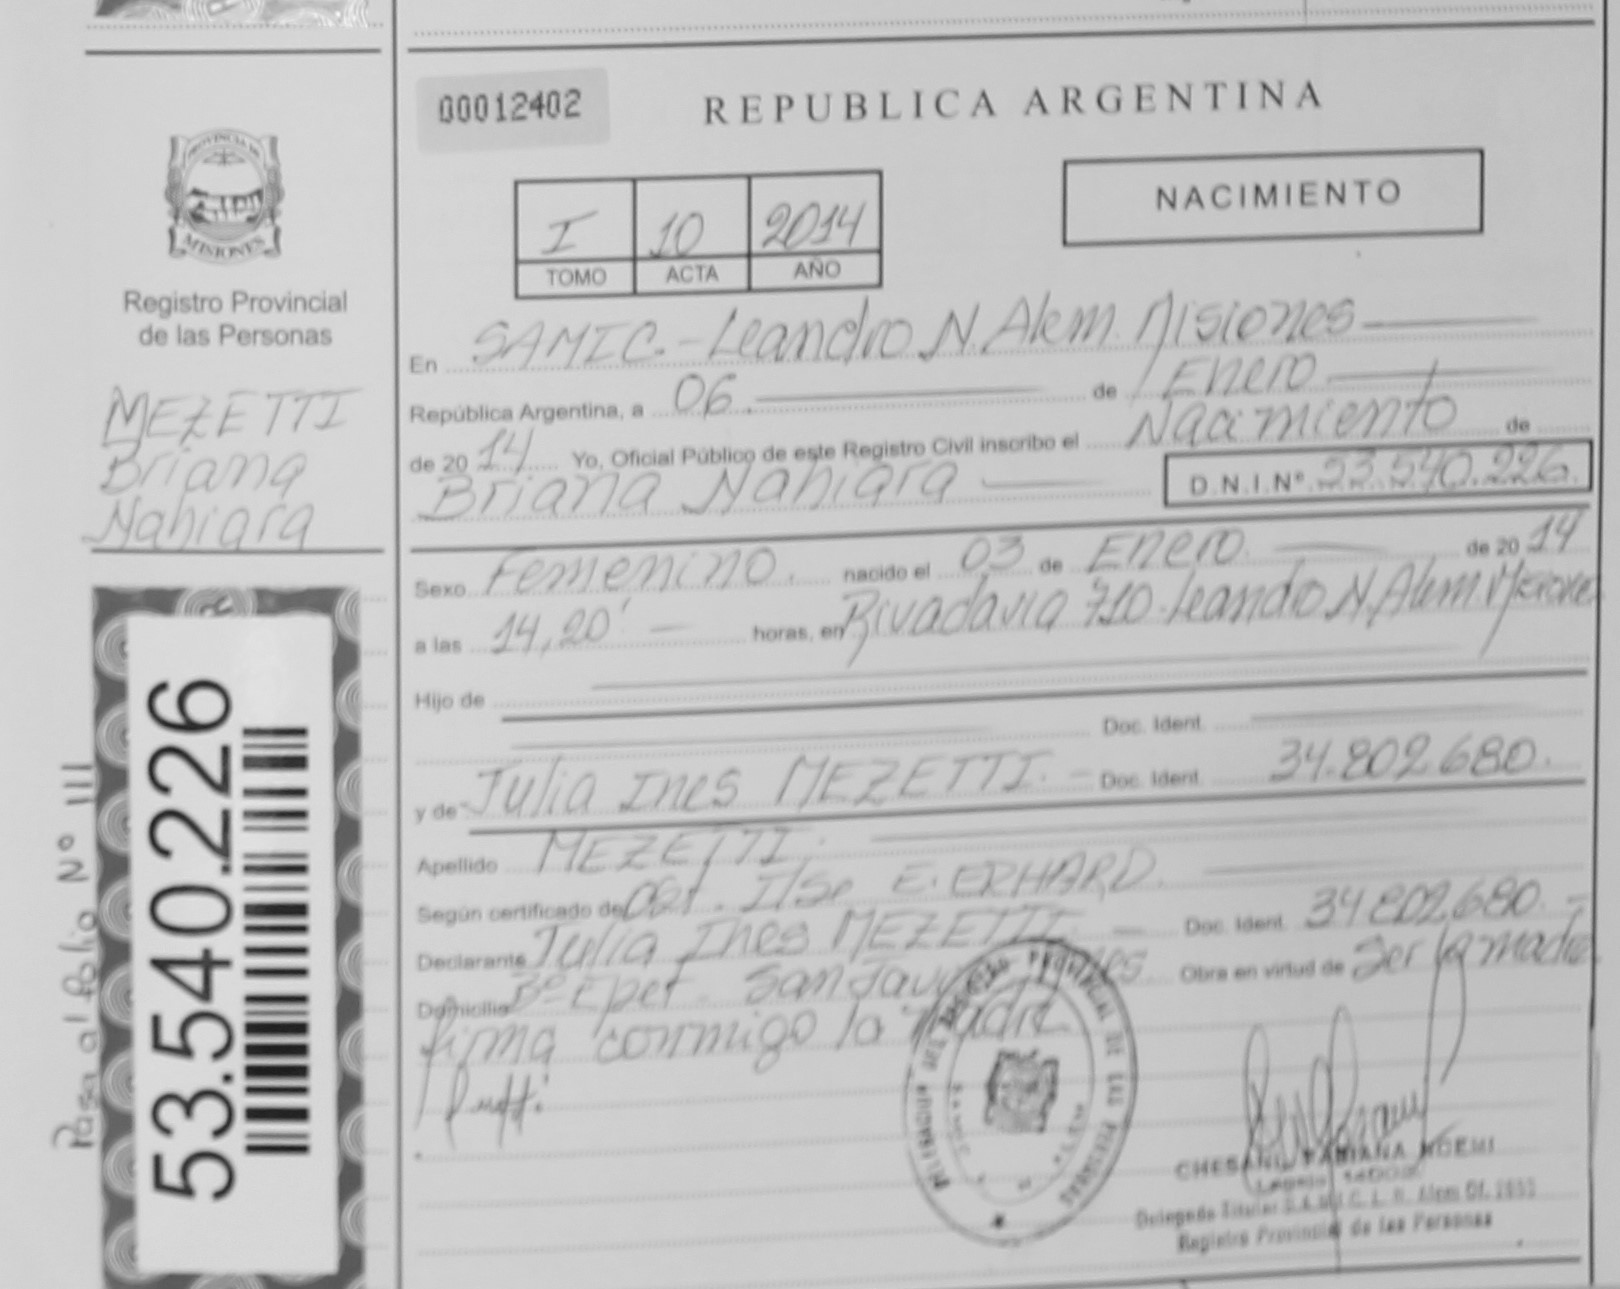 00012402
REPUBLICA ARGENTINA
NACIMIENTO
I 10 2014
TOMO ACTA AÑO
PROVINCIA DE
MISIONES
Registro Provincial
de las Personas
MEZETTI
Briana
Nahiara
Pasa al folio N° 111
53.540.226
En SAMIC.-Leandro N. Alem. Misiones
República Argentina, a 06. de Enero
de 2014 Yo, Oficial Público de este Registro Civil inscribo el Nacimiento de
Briana Nahiara D.N.I.N° 53.540.226.
Sexo Femenino. nacido el 03 de Enero. de 2014
a las 14,20' horas, en Rivadavia 710. Leandro N. Alem. Misiones
Hijo de
Doc. Ident.
y de Julia Ines MEZETTI. - Doc. Ident. 34.802.680.
Apellido MEZETTI.
Según certificado de Obt. Ilse E. ERHARD.
Declarante Julia Ines MEZETTI Doc. Ident. 34802680.-
Domicilio B° Epet. San Javier Obra en virtud de Ser la madre
firma conmigo la Madre
PROVINCIAL DE LAS PERSONAS
CHESANI, FABIANA NOEMI
Delegada Titular S.A.M.I.C. L. N. Alem Of.
Registro Provincial de las Personas